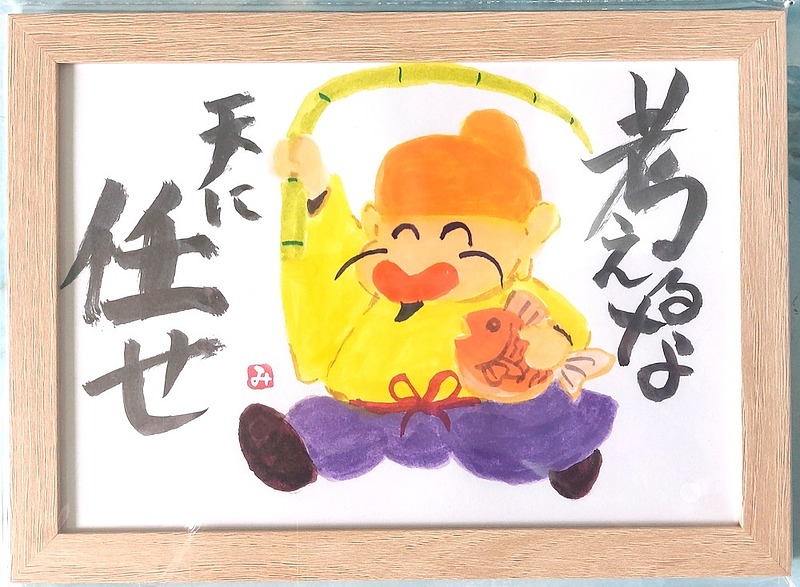 考えるなよ
天に
任せ
み